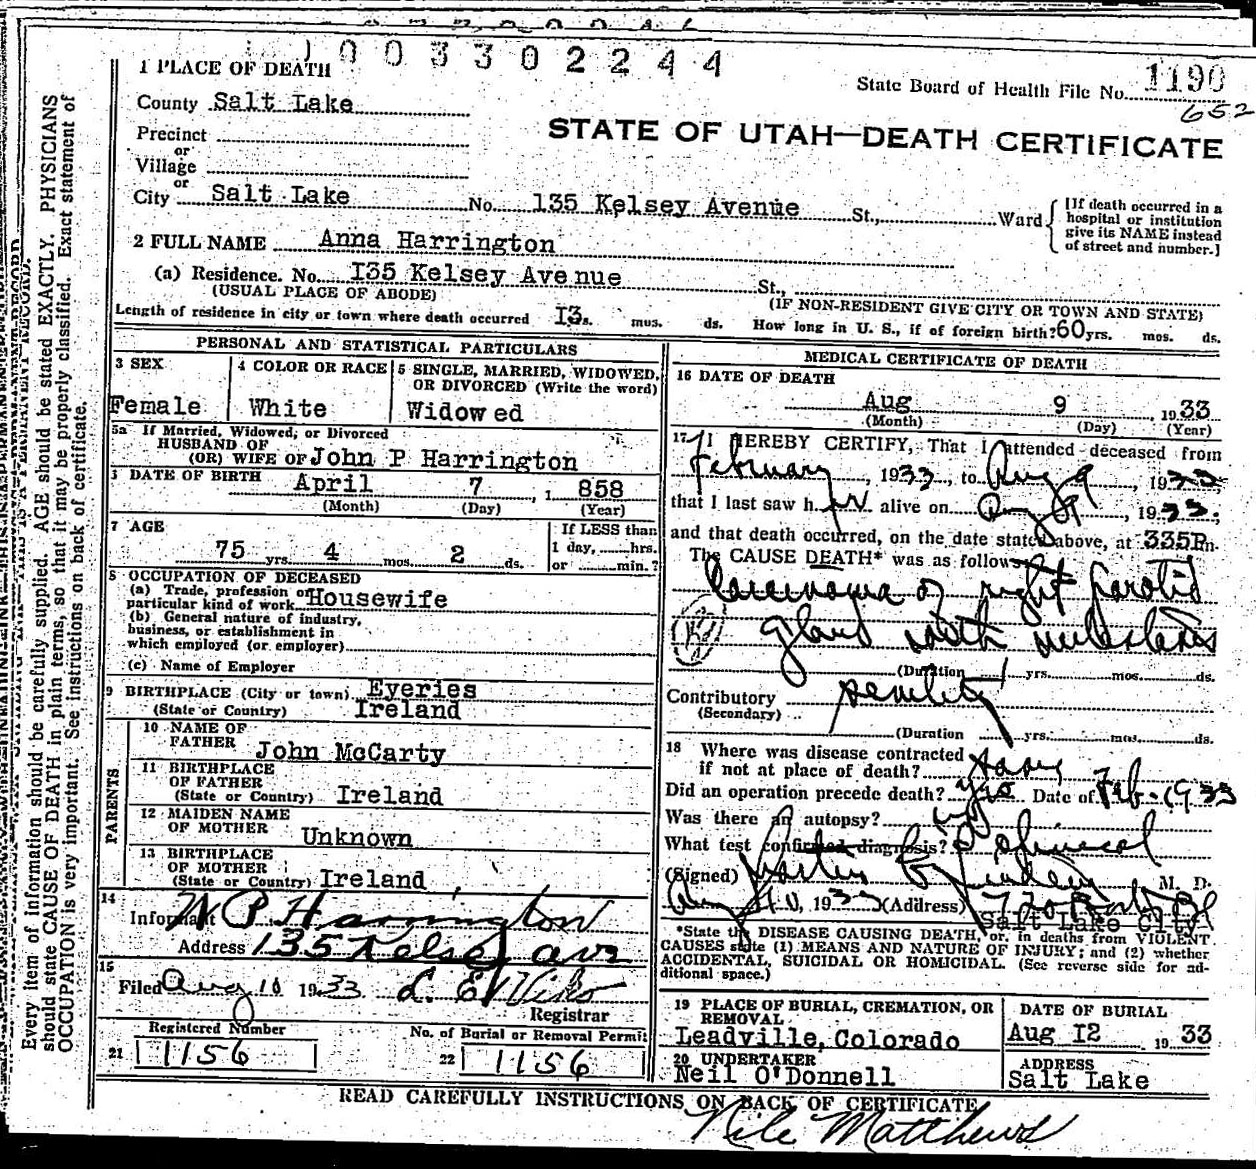 1003302244
1 PLACE OF DEATH
State Board of Health File No. 1190
652
County Salt Lake
STATE OF UTAH—DEATH CERTIFICATE
Precinct
or
Village
or
City Salt Lake No. 135 Kelsey Avenue St., Ward
[If death occurred in a
hospital or institution
give its NAME instead
of street and number.]
2 FULL NAME Anna Harrington
(a) Residence. No. I35 Kelsey Avenue St.,
(USUAL PLACE OF ABODE) (IF NON-RESIDENT GIVE CITY OR TOWN AND STATE)
Length of residence in city or town where death occurred I3 mos. ds. How long in U. S., if of foreign birth? 60 yrs. mos. ds.
PERSONAL AND STATISTICAL PARTICULARS
3 SEX
Female
4 COLOR OR RACE
White
5 SINGLE, MARRIED, WIDOWED,
OR DIVORCED (Write the word)
Widowed
5a If Married, Widowed, or Divorced
HUSBAND OF
(OR) WIFE OF John P Harrington
DATE OF BIRTH April 7, 1858
(Month) (Day) (Year)
7 AGE
75 yrs. 4 mos. 2 ds.
If LESS than
1 day, hrs.
or min.?
8 OCCUPATION OF DECEASED
(a) Trade, profession or
particular kind of work Housewife
(b) General nature of industry,
business, or establishment in
which employed (or employer)
(c) Name of Employer
9 BIRTHPLACE (City or town) Eyeries
(State or Country) Ireland
PARENTS
10 NAME OF
FATHER John McCarty
11 BIRTHPLACE
OF FATHER
(State or Country) Ireland
12 MAIDEN NAME
OF MOTHER Unknown
13 BIRTHPLACE
OF MOTHER
(State or Country) Ireland
14
Informant W P Harrington
Address 135 Kelsey ave
15
Filed Aug 10 1933
Registrar
Registered Number
21 1156
No. of Burial or Removal Permit
22 1156
MEDICAL CERTIFICATE OF DEATH
16 DATE OF DEATH
Aug 9, 1933
(Month) (Day) (Year)
17 I HEREBY CERTIFY, That I attended deceased from
February, 1933, to Aug 9, 1933
that I last saw her alive on Aug 9, 1933;
and that death occurred, on the date stated above, at 335P m.
The CAUSE DEATH* was as follows
Carcinoma of right parotid
gland with metastasis
(Duration 1 yrs. mos. ds.
Contributory senility
(Secondary)
(Duration yrs. mos. ds.
18 Where was disease contracted
if not at place of death?
Did an operation precede death? yes Date of Feb. 1933
Was there an autopsy?
What test confirmed diagnosis? Clinical
(Signed) M. D.
1933 (Address)
Salt Lake City
*State the DISEASE CAUSING DEATH, or, in deaths from VIOLENT
CAUSES state (1) MEANS AND NATURE OF INJURY; and (2) whether
ACCIDENTAL, SUICIDAL OR HOMICIDAL. (See reverse side for ad-
ditional space.)
19 PLACE OF BURIAL, CREMATION, OR
REMOVAL
Leadville, Colorado
DATE OF BURIAL
Aug I2 1933
20 UNDERTAKER
Neil O'Donnell
ADDRESS
Salt Lake
READ CAREFULLY INSTRUCTIONS ON BACK OF CERTIFICATE
Nile Matthews
Every item of information should be carefully supplied. AGE should be stated EXACTLY. PHYSICIANS
should state CAUSE OF DEATH in plain terms, so that it may be properly classified. Exact statement of
OCCUPATION is very important. See instructions on back of certificate.